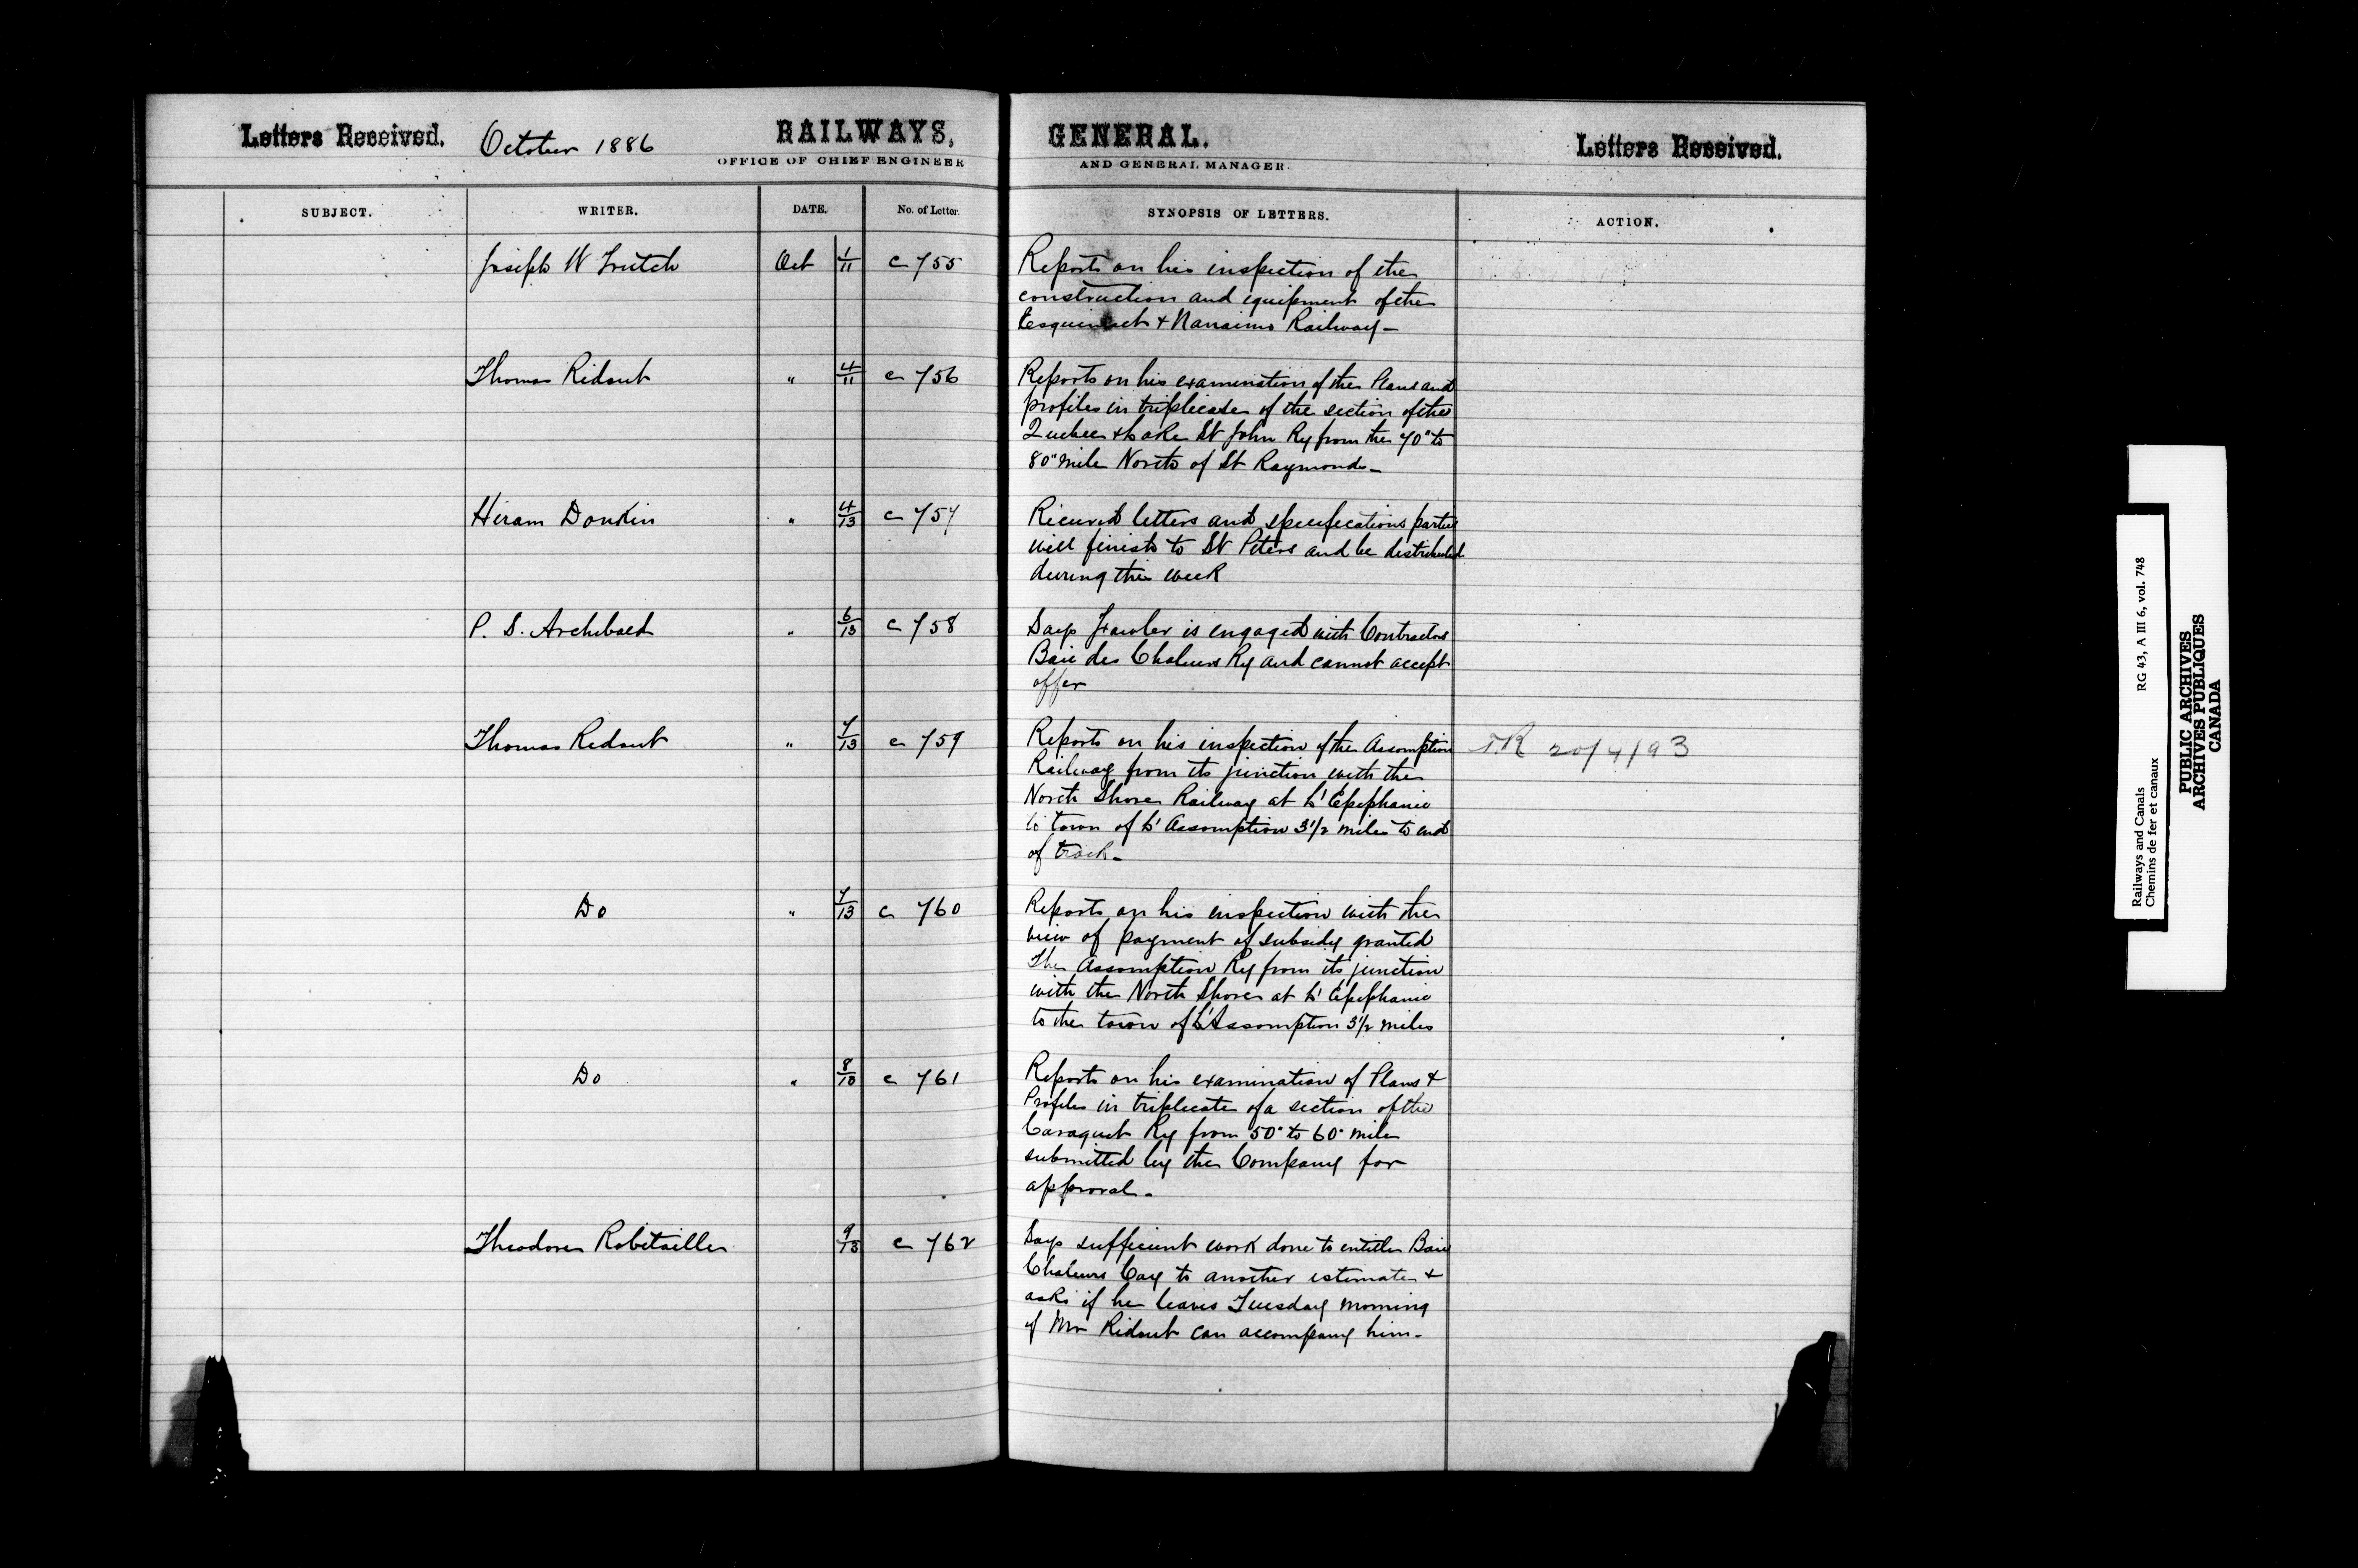 Letters Received. October 1886 RAILWAYS, GENERAL. Letters Received.
OFFICE OF CHIEF ENGINEER AND GENERAL MANAGER.
SUBJECT. WRITER. DATE. No. of Letter. SYNOPSIS OF LETTERS. ACTION.
Joseph W Trutch Oct 1/11 c 755 Reports on his inspection of the
construction and equipment of the
Esquimalt & Nanaimo Railway -
Thomas Ridout " 4/11 c 756 Reports on his examination of the Plans and
profiles in triplicate of the section of the
Quebec & Lake St John Ry from the 70" to
80" mile North of St Raymond -
Hiram Donkin " 4/13 c 757 Received letters and specifications parties
will finish to St Peters and be distributed
during this week
P. S. Archibald " 6/13 c 758 Says Fowler is engaged with Contractors
Baie des Chaleurs Ry and cannot accept
offer
Thomas Ridout " 7/13 c 759 Reports on his inspection of the Assomption TR 20/4/93
Railway from its junction with the
North Shore Railway at L'Epiphanie
to town of L'Assomption 3 1/2 miles to end
of track -
Do " 7/13 c 760 Reports on his inspection with the
view of payment of subsidy granted
The Assomption Ry from its junction
with the North Shore at L'Epiphanie
to the town of L'Assomption 3 1/2 miles
Do " 8/13 c 761 Reports on his examination of Plans &
Profiles in triplicate of a section of the
Caraquet Ry from 50" to 60" mile
submitted by the Company for
approval -
Theodore Robitaille 9/13 c 762 Says sufficient work done to entitle Baie
Chaleurs Coy to another estimate &
asks if he leaves Tuesday morning
if Mr Ridout can accompany him -
Railways and Canals RG 43, A III 6, vol. 748
Chemins de fer et canaux
PUBLIC ARCHIVES
ARCHIVES PUBLIQUES
CANADA